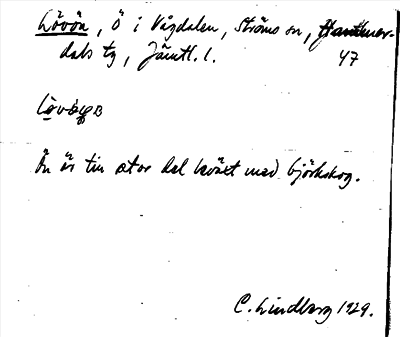 Lövön, ö i Vågdalen, Ströms sn, Hammer-
dals tg, Jämtl. l. 47
Ön är till stor del beväxt med björkskog.
C. Lindberg 1929.